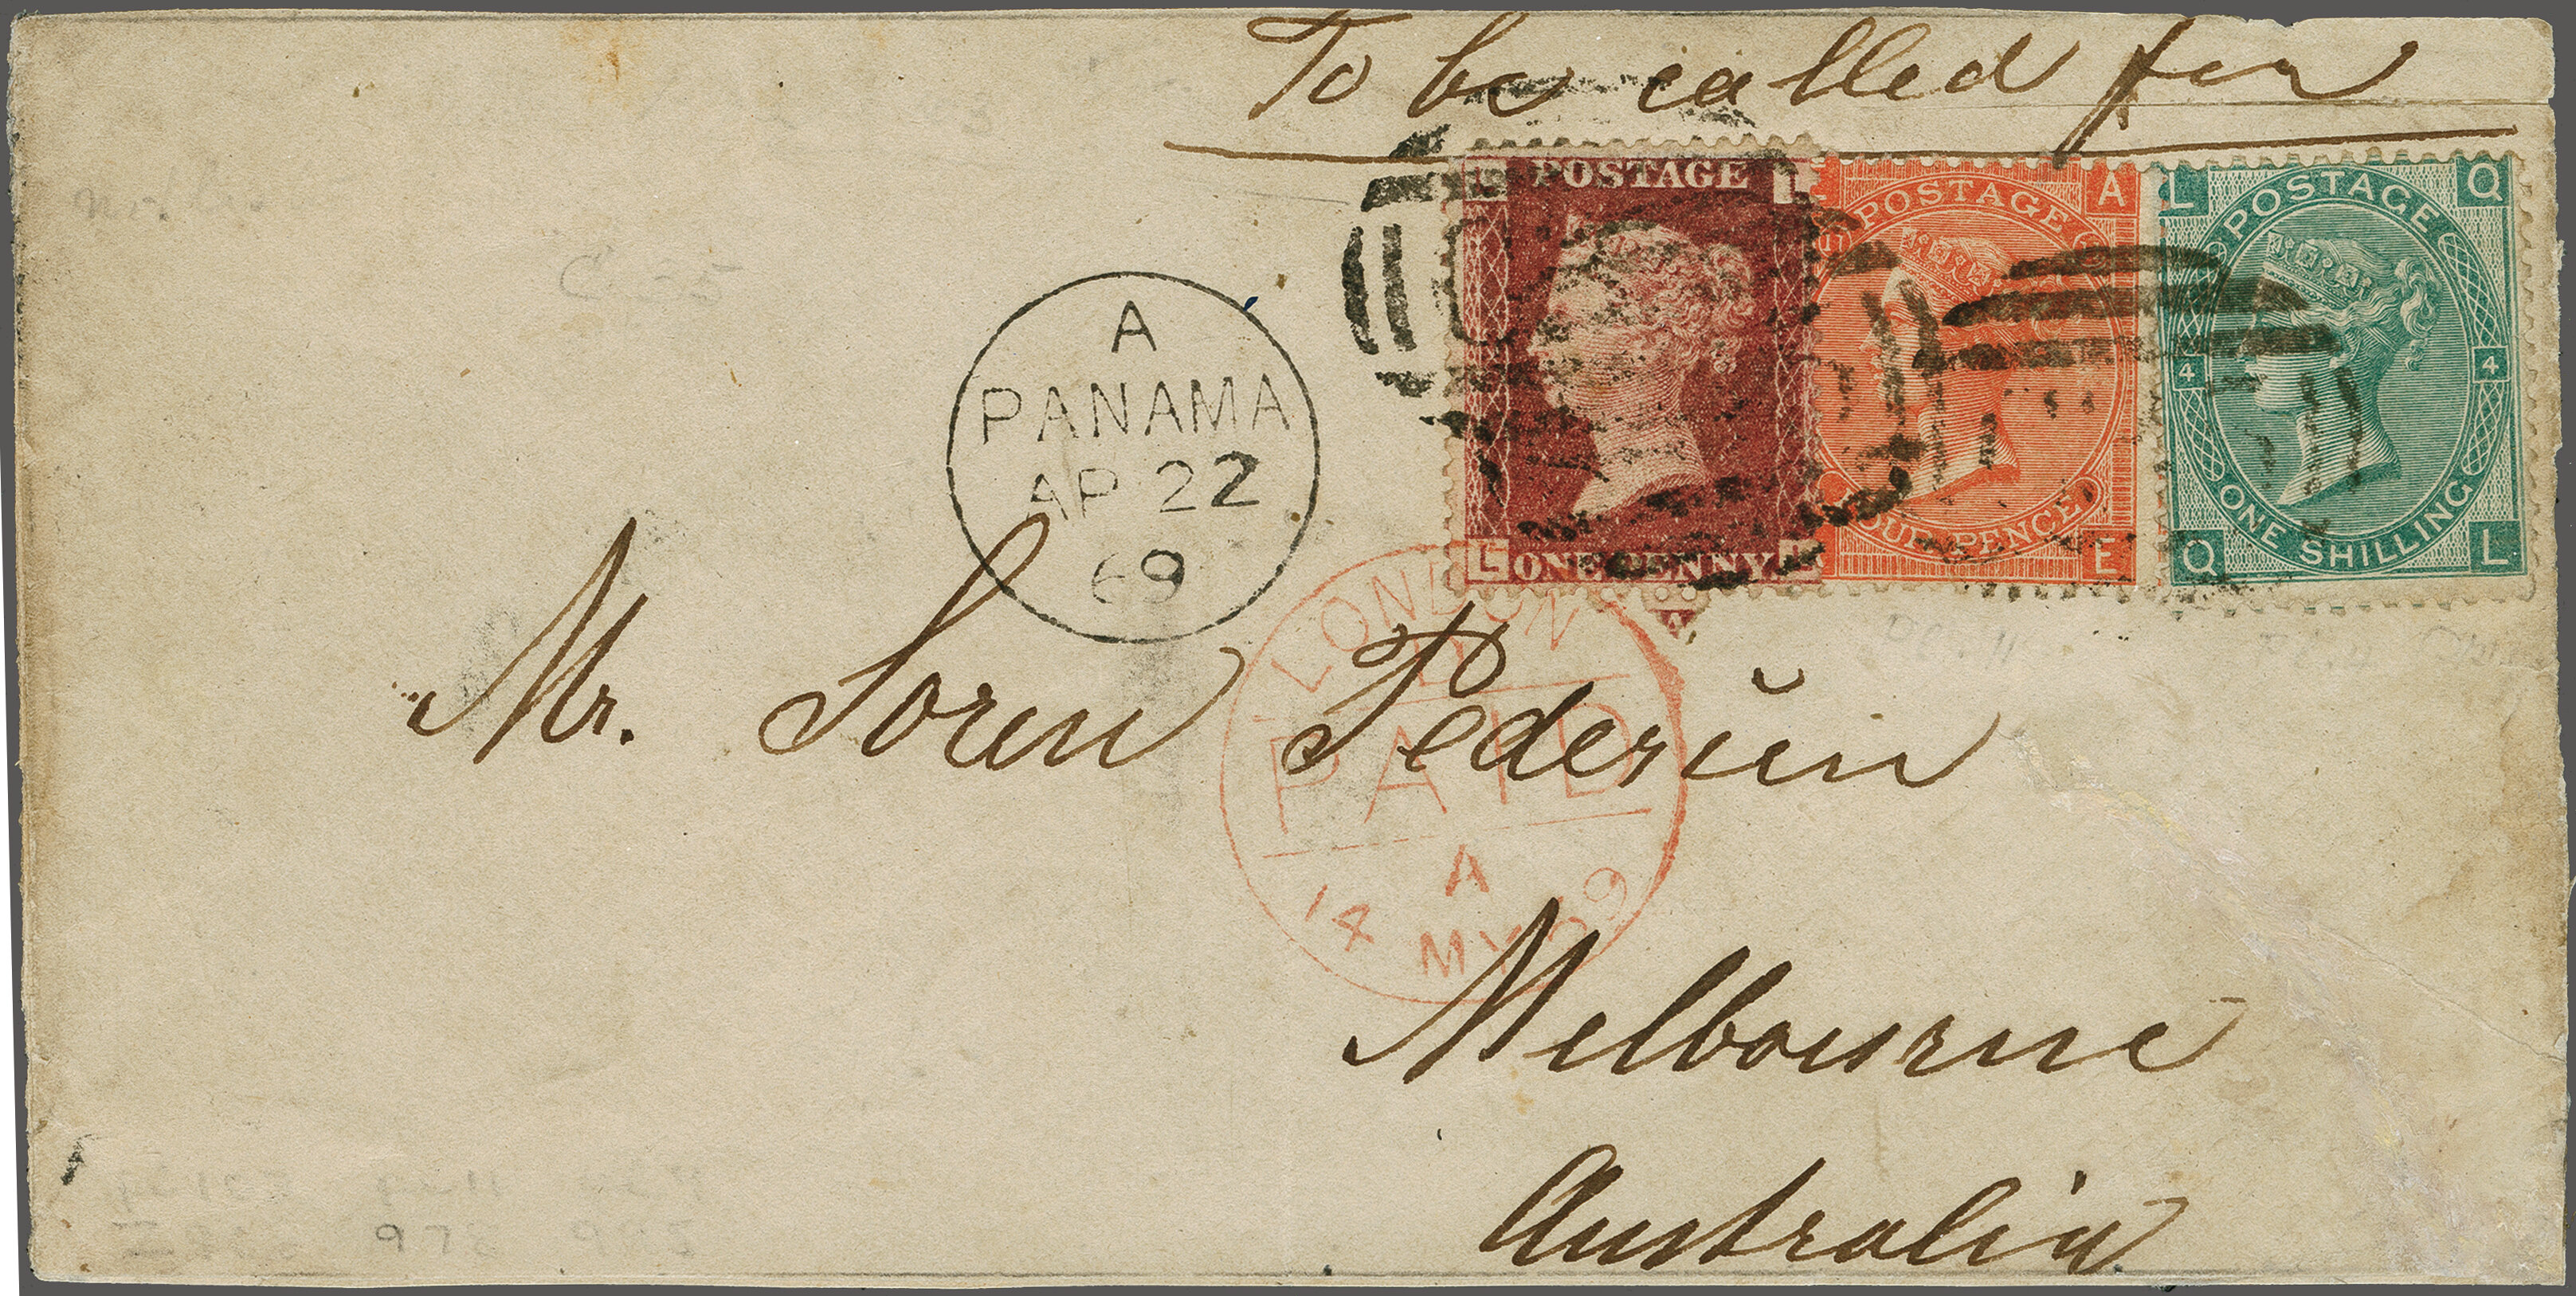 To be called for
POSTAGE
ONE PENNY
L L
POSTAGE
A
FOUR PENCE
E
L POSTAGE Q
4 4
ONE SHILLING
Q L
A
PANAMA
AP 22
69
LONDON
PAID
A
14 MY 69
Mr. Soren Pedersen
Melbourne
Australia